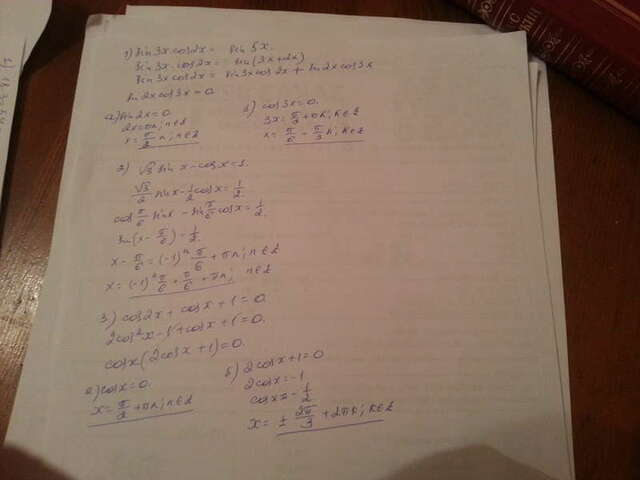 1) sin 3x cos 2x = sin 5x.
sin 3x · cos 2x = sin(3x+2x)
sin 3x cos 2x = sin 3x cos 2x + sin 2x cos 3x
sin 2x cos 3x = 0
а) sin 2x = 0.
2x = πn; n∈Z
x = π/2 n; n∈Z
б) cos 3x = 0.
3x = π/2 + πk; k∈Z
x = π/6 - π/3 k; k∈Z
2) √3 sin x - cos x = 1.
√3/2 sin x - 1/2 cos x = 1/2.
cos π/6 sin x - sin π/6 cos x = 1/2.
sin(x - π/6) - 1/2.
x - π/6 = (-1)ⁿ π/6 + πn; n∈Z
x = (-1)ⁿ π/6 + π/6 + πn; n∈Z
3) cos 2x + cos x + 1 = 0.
2cos² x - 1 + cos x + 1 = 0.
cos x (2cos x + 1) = 0.
а) cos x = 0.
x = π/2 + πn; n∈Z
б) 2 cos x + 1 = 0
2 cos x = -1
cos x = -1/2
x = ± 2π/3 + 2πk; k∈Z